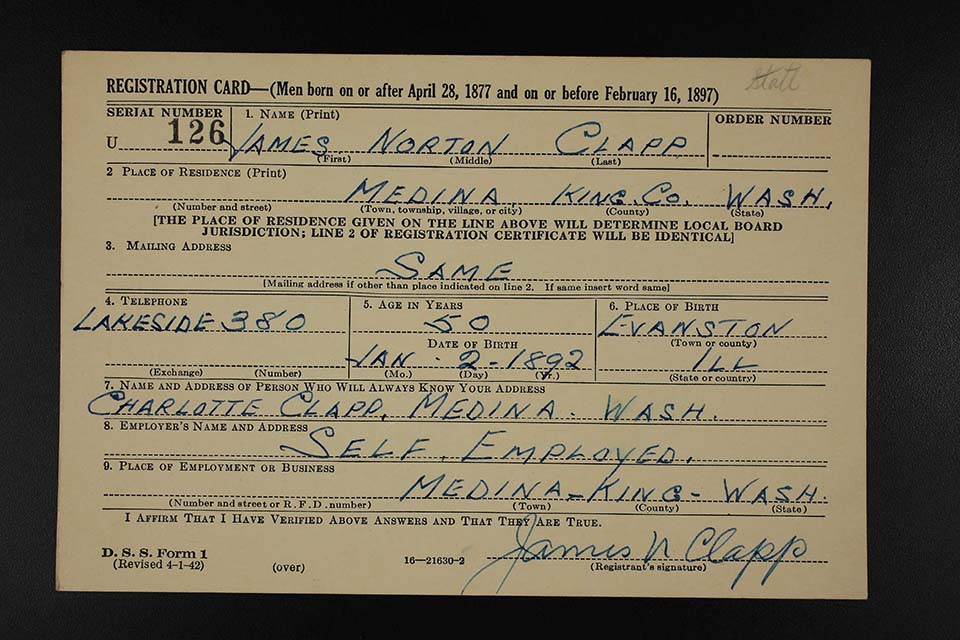 Stall
REGISTRATION CARD—(Men born on or after April 28, 1877 and on or before February 16, 1897)
SERIAL NUMBER 1. NAME (Print) ORDER NUMBER
U 126 JAMES NORTON CLAPP
(First) (Middle) (Last)
2 PLACE OF RESIDENCE (Print)
MEDINA, KING. CO. WASH.
(Number and street) (Town, township, village, or city) (County) (State)
[THE PLACE OF RESIDENCE GIVEN ON THE LINE ABOVE WILL DETERMINE LOCAL BOARD
JURISDICTION; LINE 2 OF REGISTRATION CERTIFICATE WILL BE IDENTICAL]
3. MAILING ADDRESS
SAME
[Mailing address if other than place indicated on line 2. If same insert word same]
4. TELEPHONE 5. AGE IN YEARS 6. PLACE OF BIRTH
LAKESIDE 380 50 EVANSTON
DATE OF BIRTH (Town or county)
JAN. 2-1892 ILL
(Exchange) (Number) (Mo.) (Day) (Yr.) (State or country)
7. NAME AND ADDRESS OF PERSON WHO WILL ALWAYS KNOW YOUR ADDRESS
CHARLOTTE CLAPP. MEDINA. WASH.
8. EMPLOYER'S NAME AND ADDRESS
SELF. EMPLOYED.
9. PLACE OF EMPLOYMENT OR BUSINESS
MEDINA-KING- WASH.
(Number and street or R. F. D. number) (Town) (County) (State)
I AFFIRM THAT I HAVE VERIFIED ABOVE ANSWERS AND THAT THEY ARE TRUE.
James N Clapp
D. S. S. Form 1
(Revised 4-1-42) (over) 16—21630-2 (Registrant's signature)